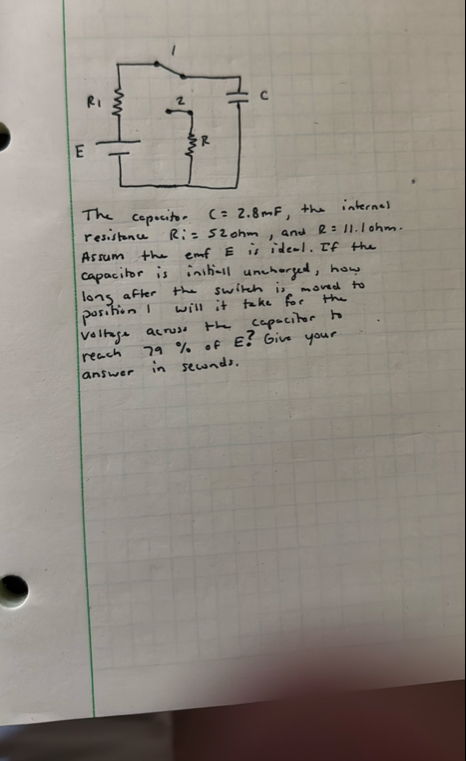 1
R1
2
C
E
R
The capacitor C = 2.8mF, the internal
resistance Ri = 52ohm, and R = 11.1ohm.
Assum the emf E is ideal. If the
capacitor is initiall uncharged, how
long after the switch is moved to
position 1 will it take for the
voltage across the capacitor to
reach 79 % of E? Give your
answer in seconds.